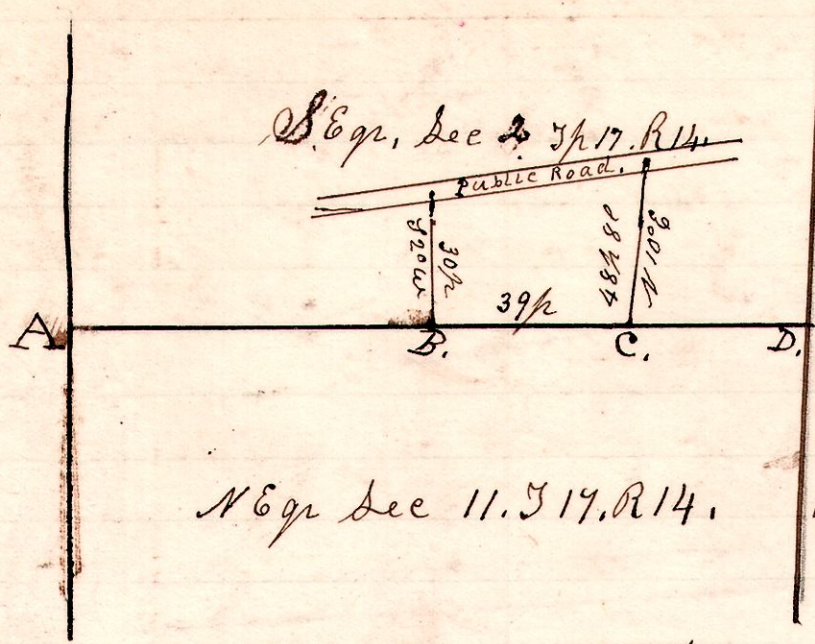 S.Eqr, Sec 2 Tp 17. R 14.
Public Road.
S 2° W
30p
48p 80
N 10° E
39p
A
B.
C.
D.
N Eqr Sec 11. T 17. R 14.